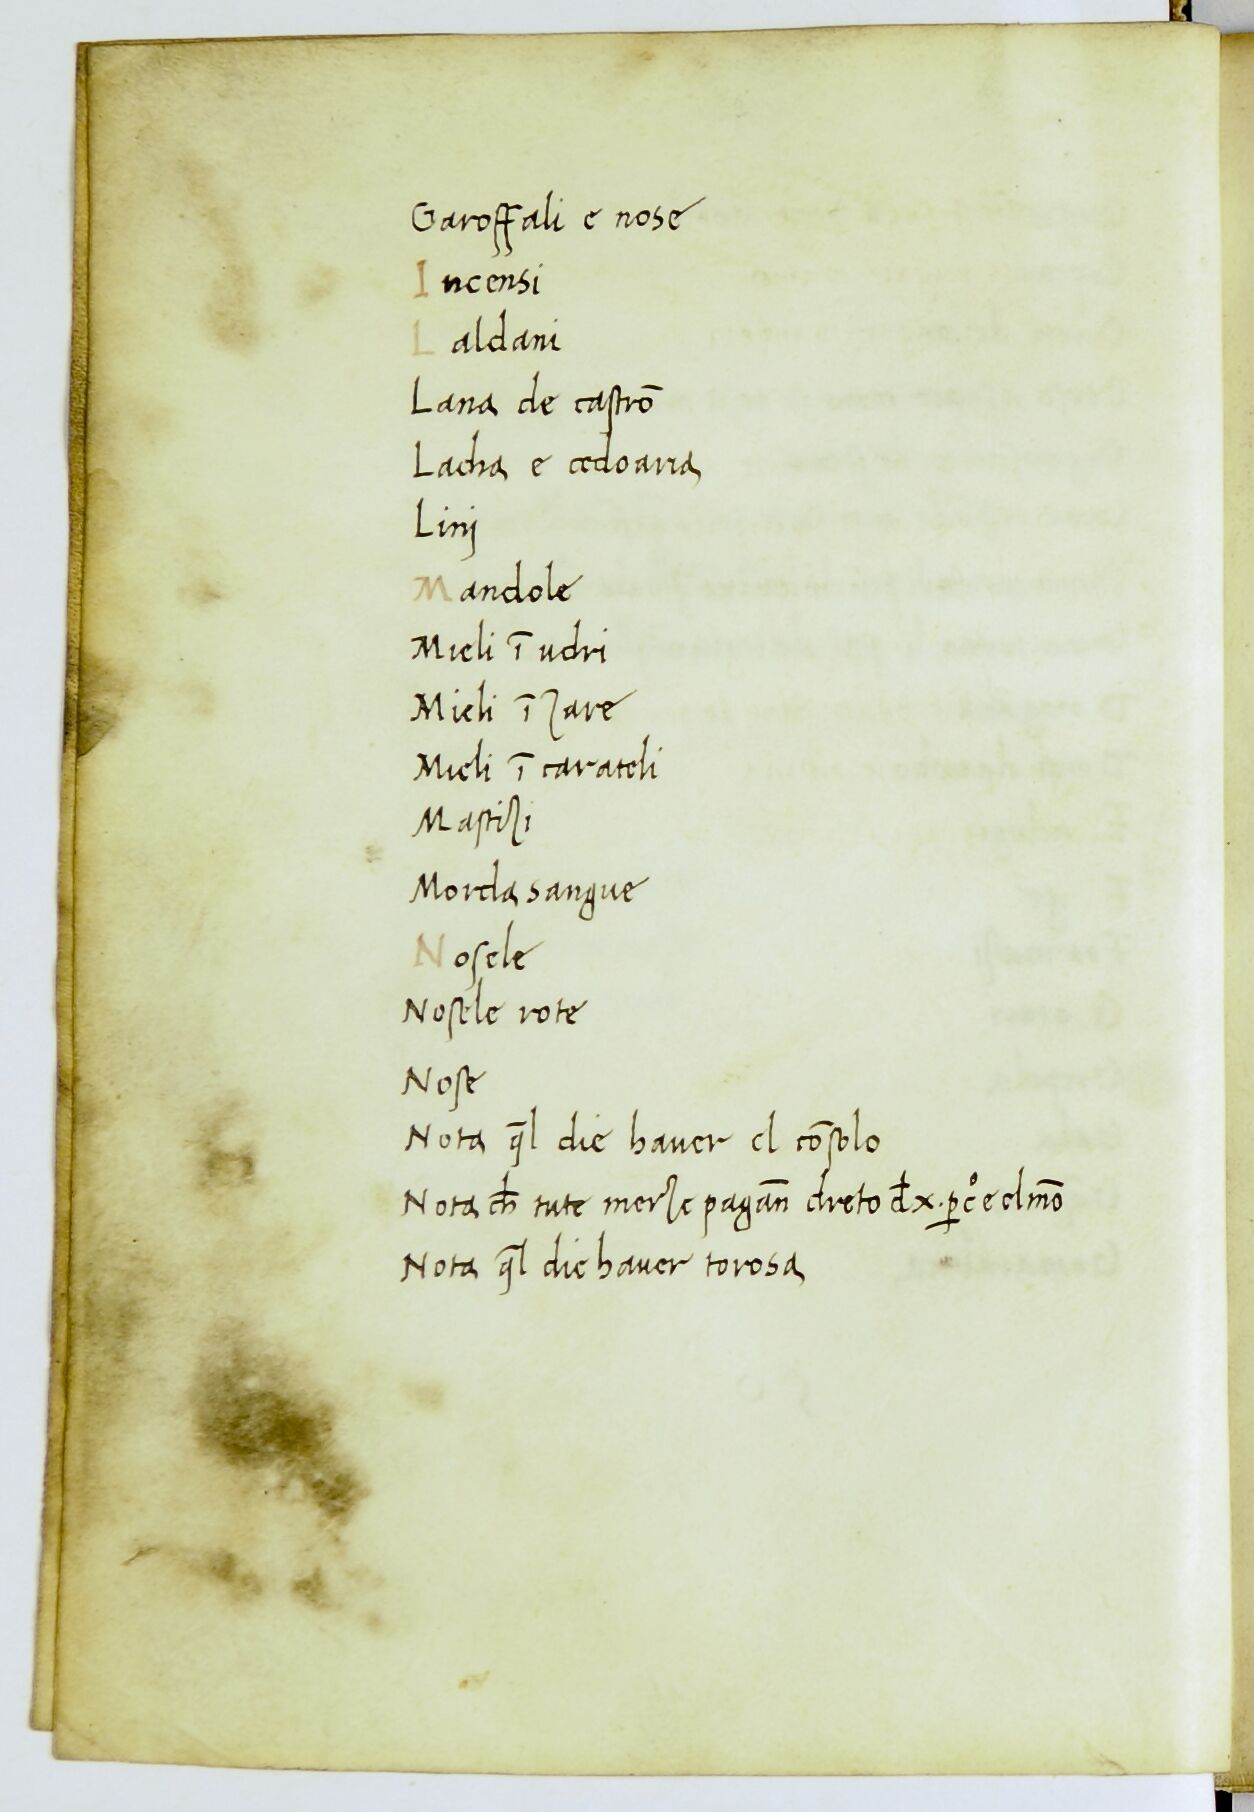 Garoffali e nose
Incensi
Laldani
Lana de castrō
Lacha e cedoaria
Linj
Mandole
Mieli ī udri
Mieli ī zare
Mieli ī carateli
Mastizi
Morda sangue
Nosele
Nosele rote
Nose
Nota q̄l die haver el cōsolo
Nota ch̄ tute merze pagān dreto
Nota q̄l die haver torosa